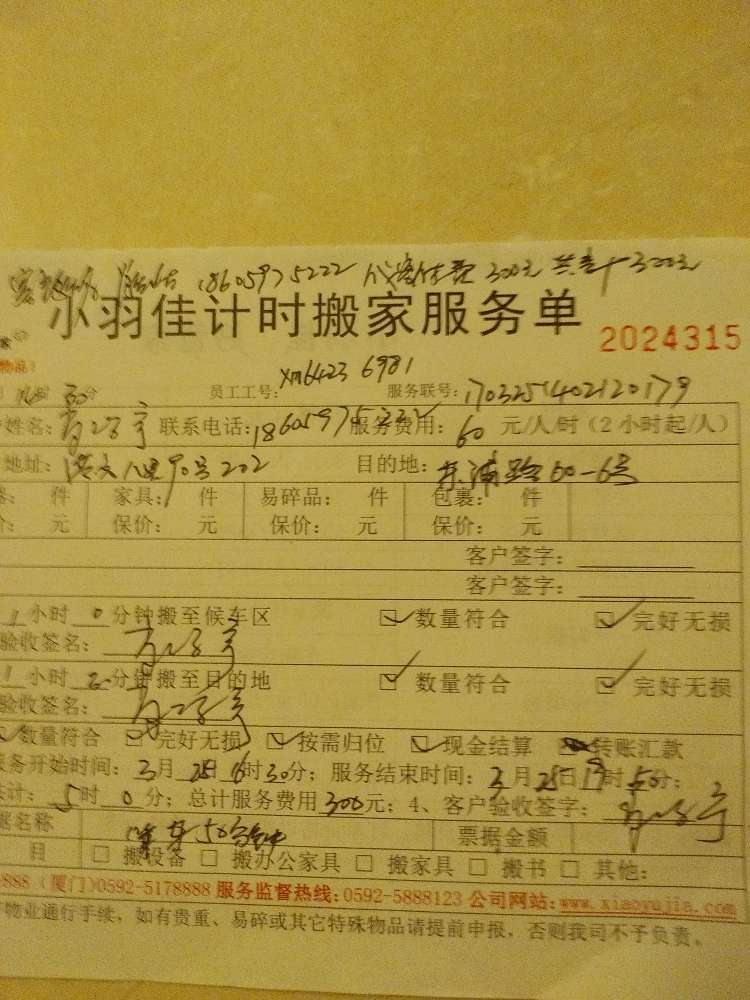 18605975222 代客付费300元 共幸+300元
小羽佳计时搬家服务单 2024315
时30分 员工工号: xm6423 6981 服务联号: 170325140212 0179
姓名: 联系电话: 18605975222 服务费用: 60 元/人/时（2小时起/人）
地址: 湾文八里90号202 目的地: 东浦路60-6号
件 家具: 件 易碎品: 件 包裹: 件
价: 元 保价: 元 保价: 元 保价: 元
客户签字:
客户签字:
1小时 0分钟搬至候车区 数量符合 完好无损
验收签名:
1小时 分钟搬至目的地 数量符合 完好无损
验收签名:
数量符合 完好无损 按需归位 现金结算 转账汇款
服务开始时间: 3月25日16时30分; 服务结束时间: 3月25日19时50分;
共计: 5时0分; 总计服务费用300元; 4、客户验收签字:
据名称 50分钟 票据金额
目 搬设备 搬办公家具 搬家具 搬书 其他:
888（厦门)0592-5178888 服务监督热线: 0592-5888123 公司网站: www.xiaoyujia.com
物业通行手续，如有贵重、易碎或其它特殊物品请提前申报，否则我司不予负责。